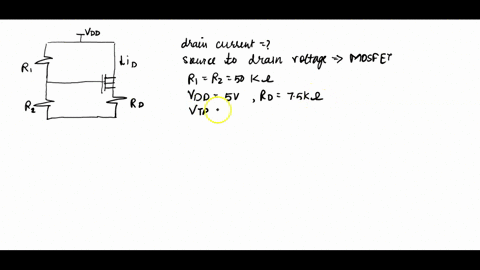 VDD
R1
↓iD
R2
RD
drain current =?
source to drain voltage => MOSFET
R1 = R2 = 50 KΩ
VDD = 5V , RD = 7.5KΩ
VTP